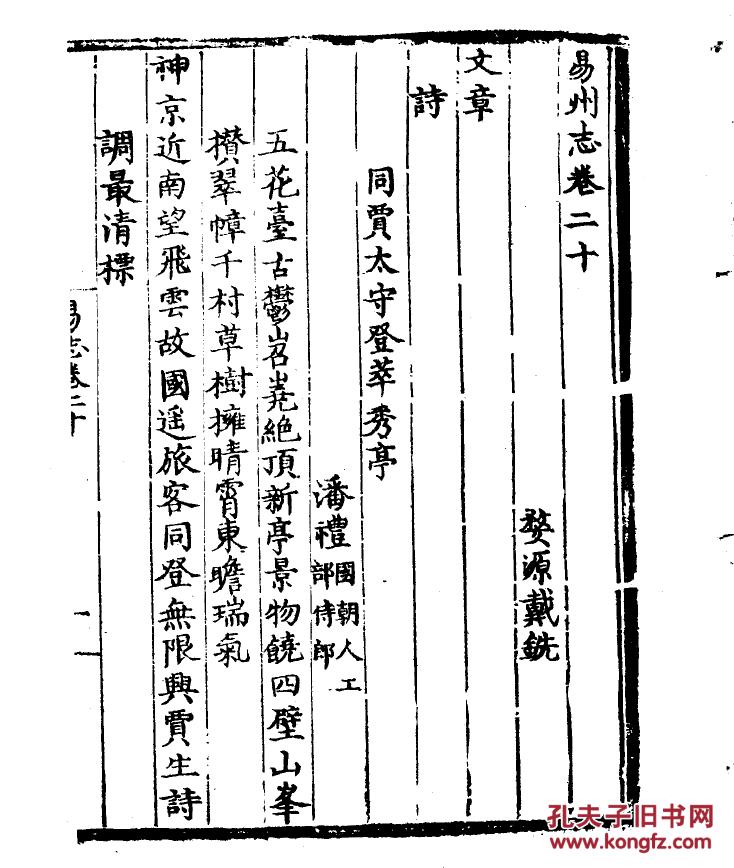 易州志卷二十
婺源戴銑
文章
詩
同賈太守登萃秀亭
潘禮國朝人工部侍郎
五花臺古鬱岧嶤絶頂新亭景物饒四壁山峯
攢翠幛千村草樹擁晴霄東瞻瑞氣
神京近南望飛雲故國遥旅客同登無限興賈生詩
調最清標
易志卷二十
一
孔夫子旧书网
www.kongfz.com